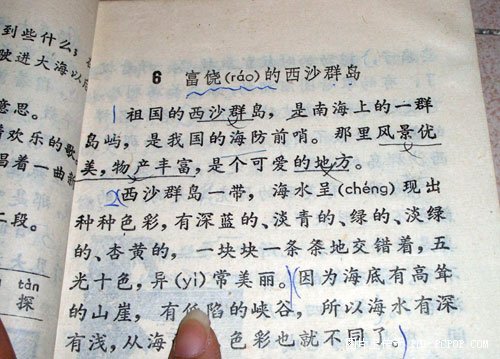 到些什么；
驶进大海以
意思。
着欢乐的歌
唱着一曲
二段。
tàn
探
6 富饶(ráo)的西沙群岛
1 祖国的西沙群岛，是南海上的一群
岛屿，是我国的海防前哨。那里风景优
美，物产丰富，是个可爱的地方。
2 西沙群岛一带，海水呈(chéng)现出
种种色彩，有深蓝的、淡青的、绿的、淡绿
的、杏黄的，一块块一条条地交错着，五
光十色，异(yì)常美丽。因为海底有高耸
的山崖，有低陷的峡谷，所以海水有深
有浅，从海 色彩也就不同了